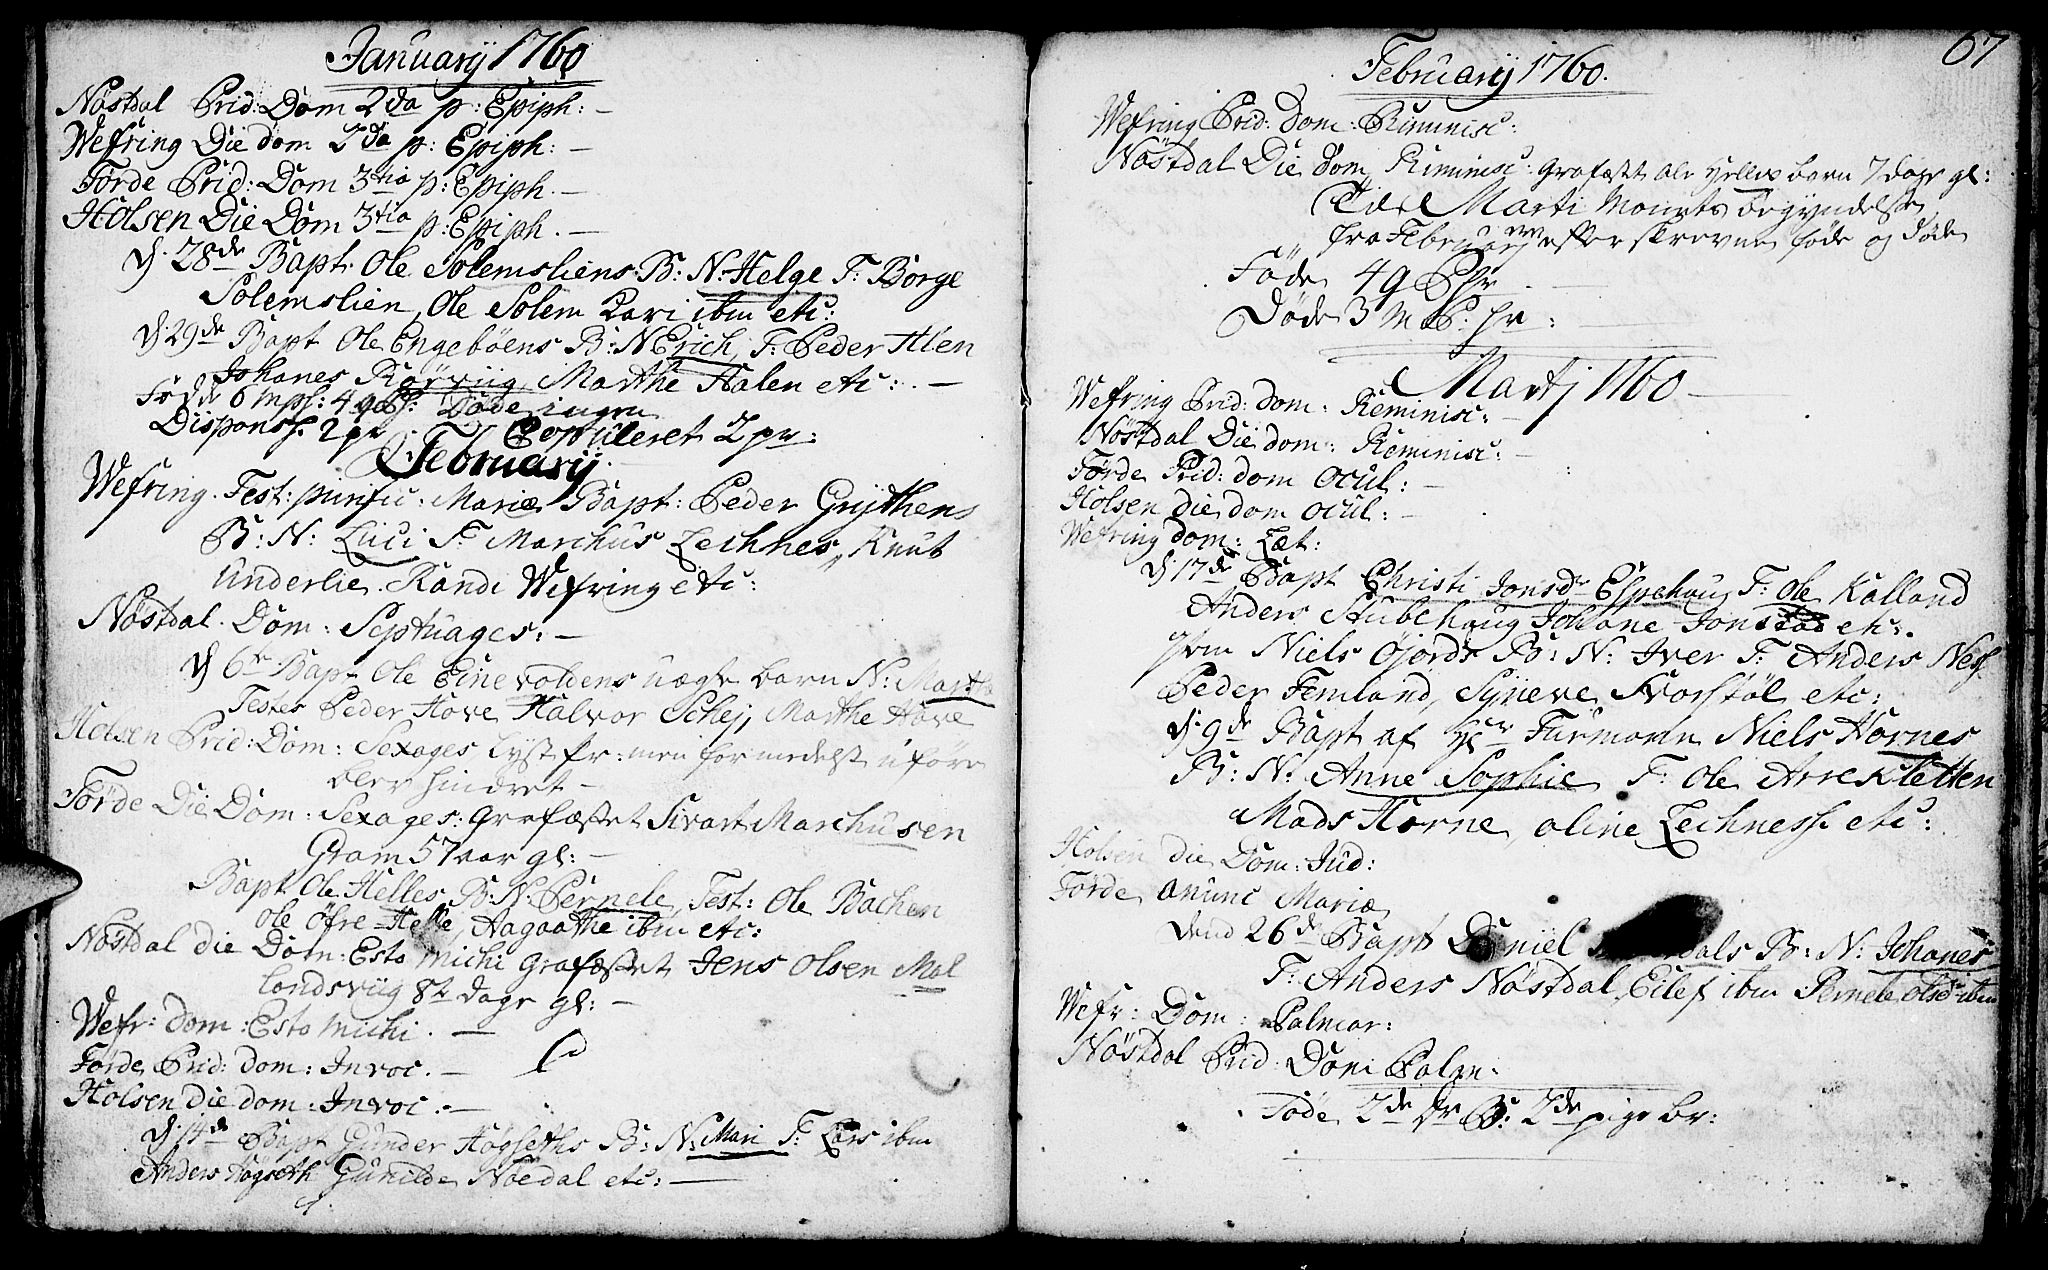 Januarij 1760
Nöstdal Prid: Dom 2da p: Epiph: —
Wefring Die dom 2da p: Epiph: —
Förde Prid: Dom 3tia p: Epiph. —
Holsen Die Dom 3tia p: Epiph. —
d. 28de Bapt: Ole Solemsliens B: N: Helge T: Börge
Solemslien, Ole Solem Kari ibm etc:
d. 29de Bapt Ole Engeböens B: N Erich, T: Peder
Johanes Marthe Halen etc: —
Döde ingen
2 pr Copuleret 2 pr:
Februarij
Wefring. Fest: purific: Mariæ Bapt: Peder Grijthens
B: N: Luci T: Marchus Lechnes, Knut
Underlie. Randi Wefring etc:
Nöstdal. Dom: Septuages: —
d 6te Bapt Ole Eine voldens uægte barn N: Martha
Testes Peder Hove Halvor Schej, Marthe Hove
Holsen Prid: Dom: Sexages lyst pr: men formedelst uföre
blev hindret —
Förde Die Dom: Sexages: Grafæstet Sivart Marchusen
Gram 57 aar gl: —
Bapt Ole Helles B: N: Pernele, Test: Ole Bachen
Ole öfre-Helle, Aagaathe ibm etc:
Nöstdal die Dom: Esto michi Grafæstet Jens Olsen Mal
landsviig 82 dage gl: —
Wefr: dom: Esto michi. —
Förde Prid: dom: Invoc. —
Holsen die dom: Invoc. —
d. 14de Bapt Gunder Högseths B: N: Mari T: Lars ibm
Anders Högseth Gunilde Nöedal etc: —
67
Februarij 1760.
Wefring Prid: Dom: Riminisc:
Nöstdal Die Dom Riminisc: Grafæstet Ole Helles barn 7 dage gl:
Til Marti Monets begyndelse
fra Februarij ere efterskrevne föde og döde
Föde 4
Döde 3
Martj 1760
Wefring Prid: dom: Reminisc: —
Nöstdal Die dom: Reminisc: —
Förde Prid: dom Ocul: —
Holsen die dom Ocul: —
Wefring dom: Læt:
d. 17de Bapt Christi Jonsdr Espehaug T: Ole Kalland
Anders Stubehaug Johane Jonstad etc:
Niels Öjords B: N: Iver T: Anders Ness
Peder Femland, Syneve Svorstöl etc:
d. 9de Bapt af Hr Furmann Niels Hornes
B: N: Anne Sophie T: Ole Arrekletten
Mads Horne, Oline Lechness etc:
Holsen die Dom: Jud:
Förde anunc Mariæ
dend 26de Bapt Daniel B: N: Johanes
T: Anders Nöstdal, Eilef ibm Pernele olsd ibm
Wefr: Dom: Palmar:
Nöstdal Prid: Dom Palm.
Föde 2de dr B: 2de pige br: